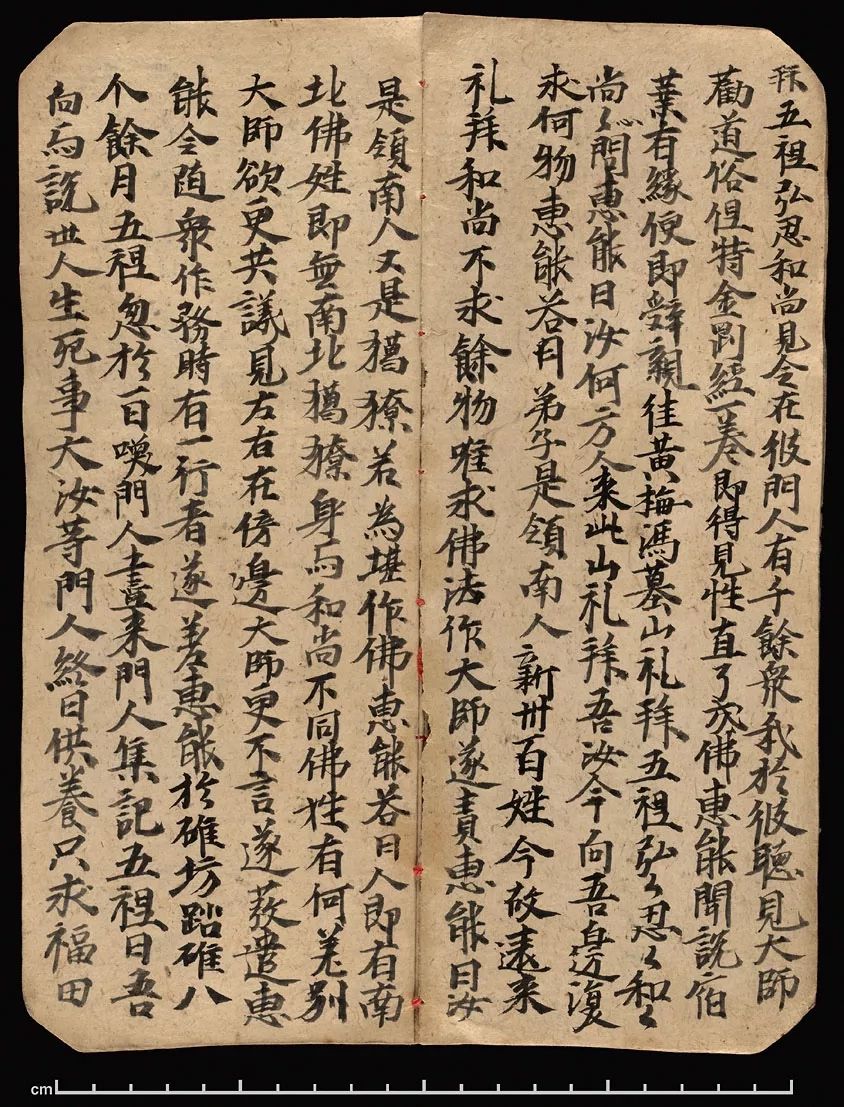 拜五祖弘忍和尚見今在彼門人有千餘衆我於彼聽見大師
勸道俗但持金剛經一卷即得見性直了成佛惠能聞說宿
業有緣便即辭親往黃梅馮墓山礼拜五祖弘々忍々和々
尚々問惠能曰汝何方人來此山礼拜吾汝今向吾邊復
求何物惠能荅曰弟子是領南人新州百姓今故遠來
礼拜和尚不求餘物唯求佛法作大師遂責惠能曰汝
是領南人又是獦獠若為堪作佛惠能荅曰人即有南
北佛姓即無南北獦獠身与和尚不同佛姓有何差別
大師欲更共議見左右在傍邊大師更不言遂發遣惠
能令随衆作務時有一行者遂差惠能於碓坊踏碓八
个餘月五祖忽於一日喚門人盡来門人集記五祖曰吾
向与說世人生死事大汝等門人終日供養只求福田
cm